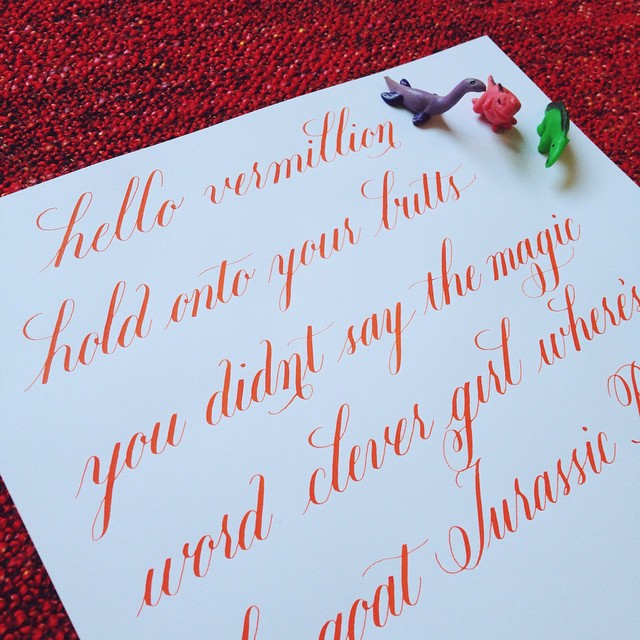 hello vermillion
hold onto your butts
you didnt say the magic
word clever girl where's
goat Jurassic